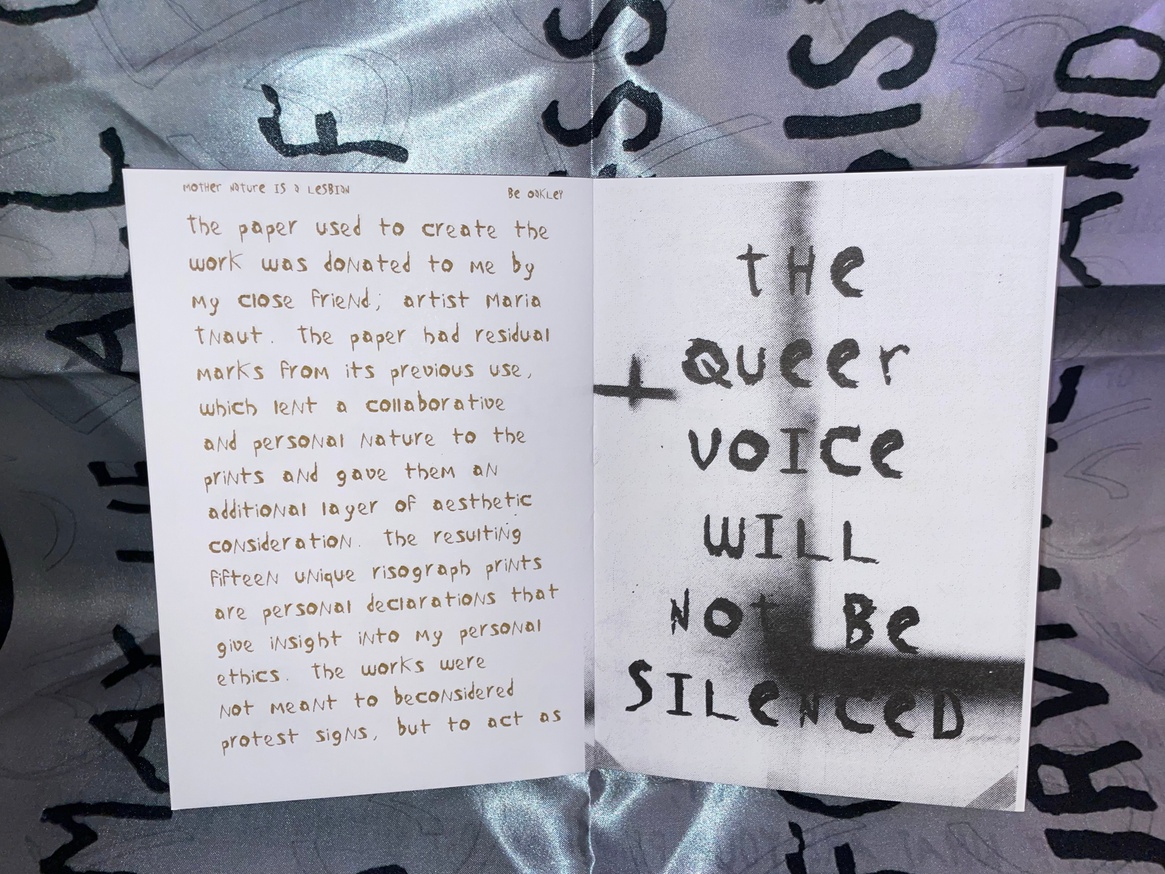 Mother Nature IS a LesBIaN
Be OaKLeY
the paper used to create the
worK was doNated to Me by
My close frieNd; artist Maria
TNaut. The paper had residual
MarKs froM its previous use,
which leNt a collaborative
aNd persoNal Nature to the
priNts aNd gave theM aN
additioNal layer of aesthetic
coNsideratioN. The resultiNg
fifteeN uNique risograph priNts
are persoNal declaratioNs that
give iNsight iNto My persoNal
ethics. The works were
Not MeaNt to becoNsidered
protest sigNs, but to act as
tHe
Queer
VOICe
WILL
Not Be
SILeNCeD
AND
MAY